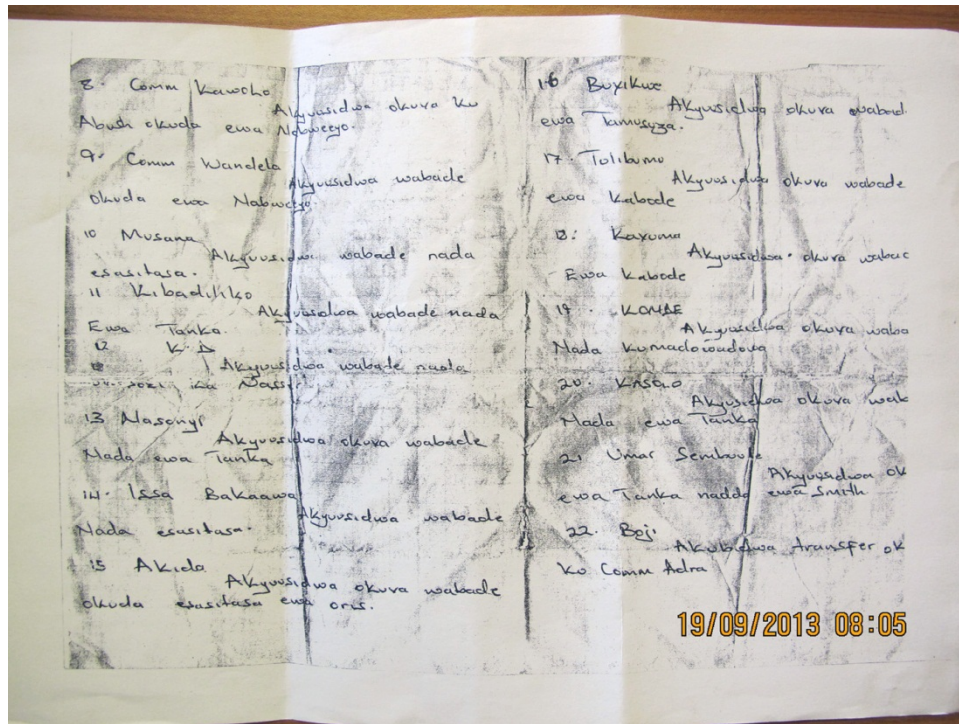 8. Comm Kawcho
Akyusidwa okuva ku
Abush okuda ewa Nabweeyo.
9. Comm Wandela
Akyusidwa wabade
okuda ewa Nabweeyo.
10 Musana
Akyuusidwa wabade nada
esasitasa.
11 Kibadiliko
Akyuusidwa wabade nada
Ewa Tanka.
12 K.D
Akyuusidwa wabade nada
13 Nasonyi
Akyuusidwa okuva wabade
Nada ewa Tanka
14. Issa Bakaawa
Akyuusidwa wabade
Nada esasitasa.
15 Akida
Akyuusidwa okuva wabade
okuda esasitasa ewa oris.
16 Buxikwe
Akyusidwa okuva wabad
ewa Tamusuza.
17. Tolibumo
Akyuusidwa okuva wabade
ewa Kabode
18. Kayuma
Akyuusidwa. okuva wabac
Ewa Kabode
19. KOMAE
Akyuusidwa okuva waba
Nada Kumadowadova
20. Knsao
Akyusidwa okuva wak
Nada ewa Tanka
21 Umar Sembuule
Akyuusidwa ok
ewa Tanka nadda ewa Smith
22. Boji
Akubidwa transfer ok
ku Comm Adra
19/09/2013 08:05